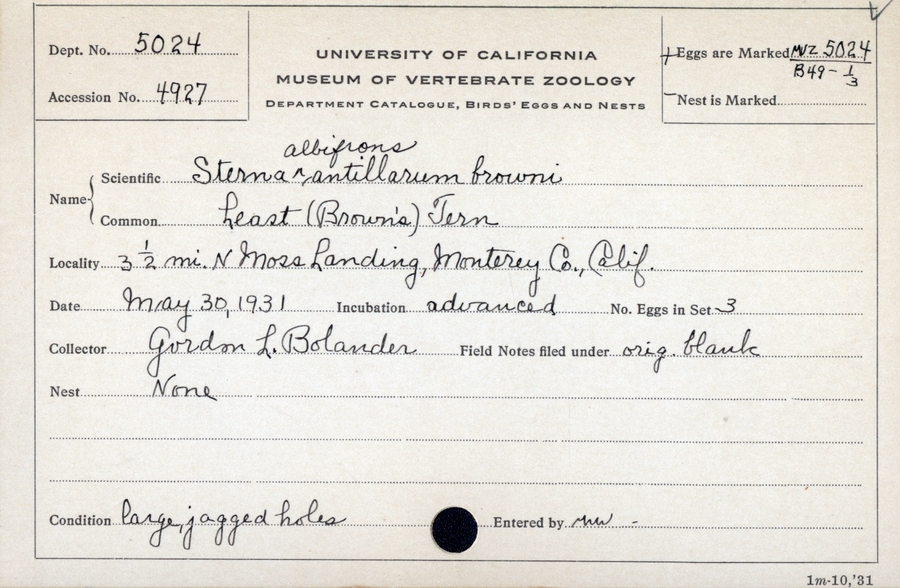 Dept. No. 5024
Accession No. 4927
UNIVERSITY OF CALIFORNIA
MUSEUM OF VERTEBRATE ZOOLOGY
DEPARTMENT CATALOGUE, BIRDS' EGGS AND NESTS
Eggs are Marked MVZ 5024
B49-1/3
Nest is Marked
albifrons
Name Scientific Sterna ^ antillarum browni
Common Least (Brown's) Tern
Locality 3 1/2 mi. N Moss Landing, Monterey Co., Calif.
Date May 30, 1931 Incubation advanced No. Eggs in Set 3
Collector Gordon L. Bolander Field Notes filed under orig. blank
Nest None
Condition large, jagged holes Entered by
1m-10,'31